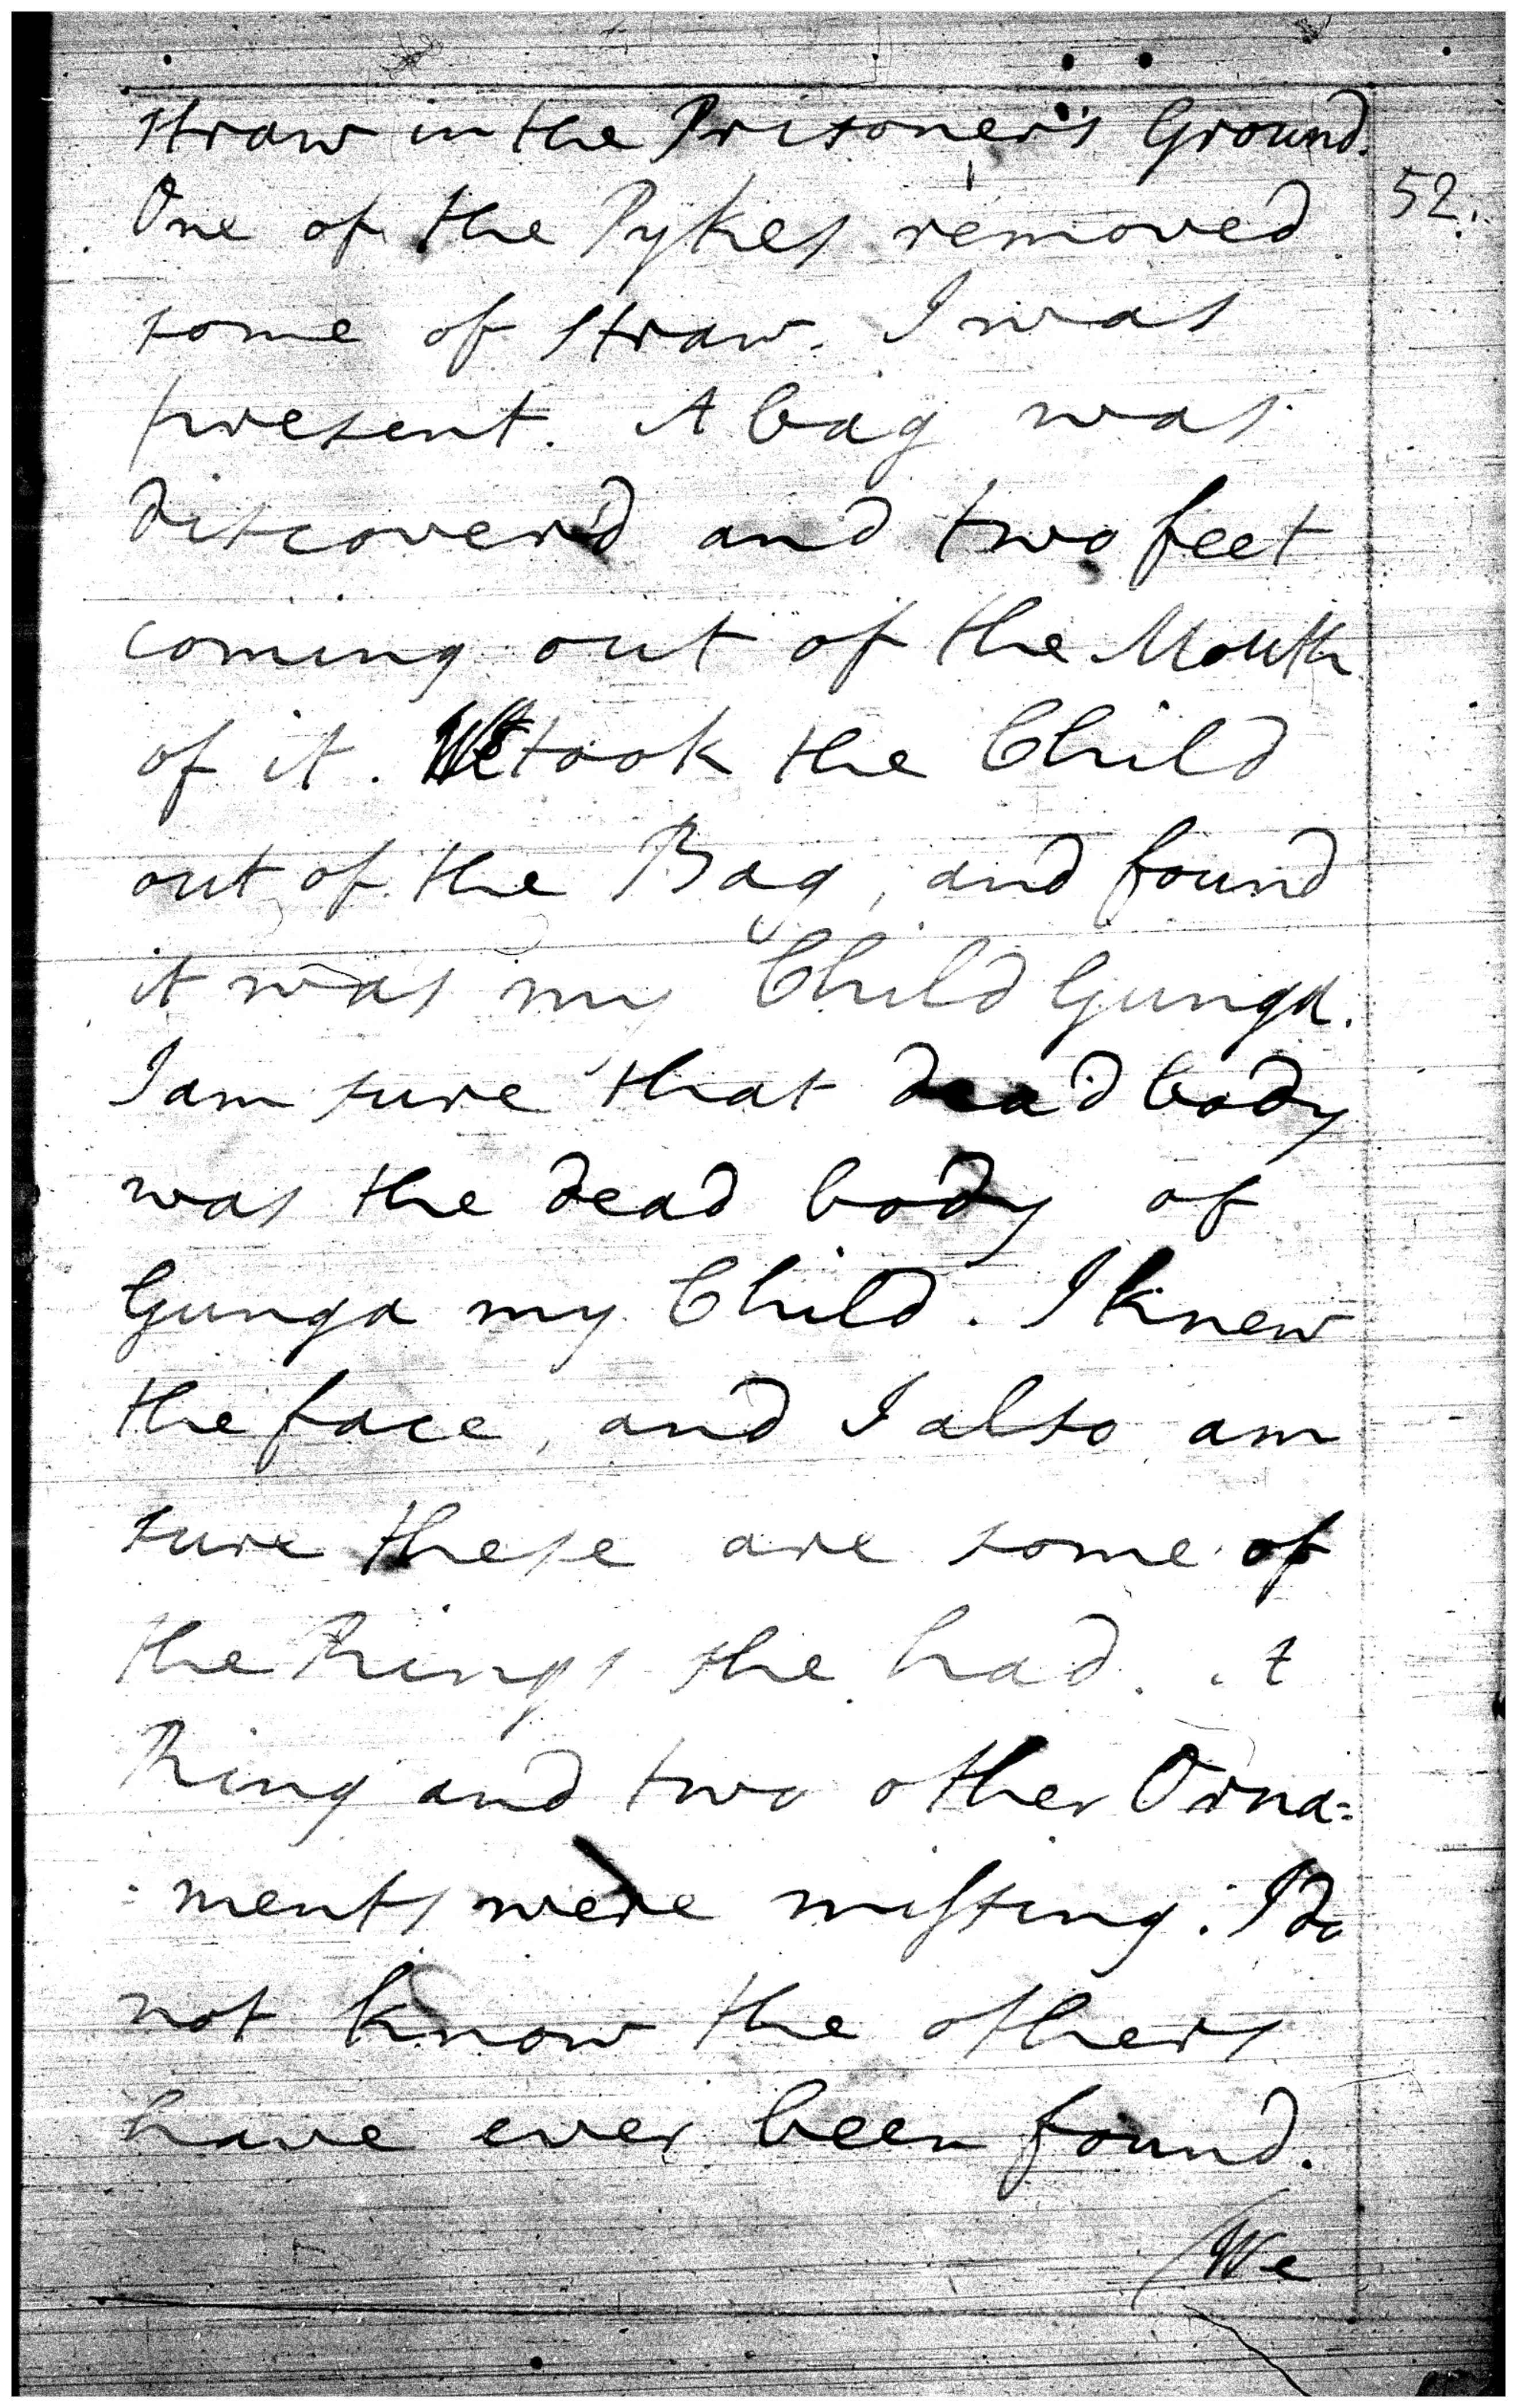 straw in the Prisoner's Ground.
52.
One of the Pykes removed
some of straw. I was
present. A bag was
discover'd and two feet
coming out of the Mouth
of it. We took the Child
out of the Bag, and found
it was my Child Gunga.
I am sure that dead body
was the dead body of
Gunga my Child. I knew
the face, and I also am
sure these are some of
the Rings she had. A
Ring and two other Orna=
=ments were missing. I do
not know the others
have ever been found.
We